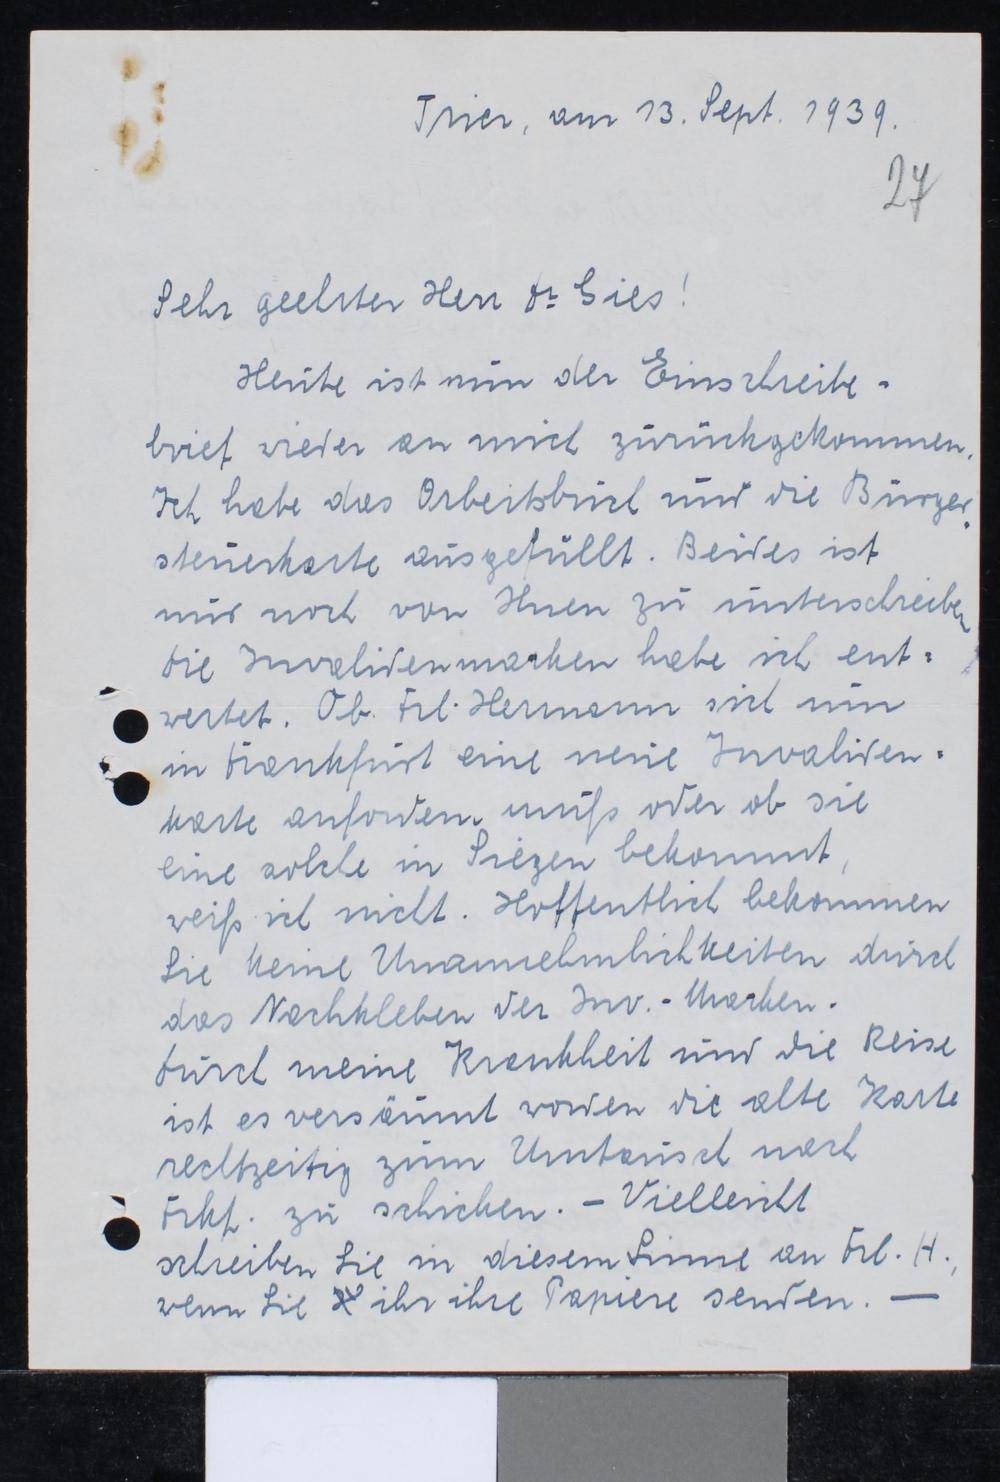 Trier, am 13. Sept. 1939.
27
Sehr geehrter Herr Dr Gies!
Heute ist nun der Einschreibe-
brief wieder an mich zurückgekommen.
Ich habe das Arbeitsbuch und die Bürger-
steuerkarte ausgefüllt. Beides ist
nur noch von Ihnen zu unterschreiben
Die Invalidenmarken habe ich ent-
wertet. Ob Frl. Hermann sich nun
in Frankfurt eine neue Invaliden-
karte anfordern muß oder ob sie
eine solche in Siegen bekommt,
weiß ich nicht. Hoffentlich bekommen
Sie keine Unannehmlichkeiten durch
das Nachkleben der Inv.-Marken.
Durch meine Krankheit und die Reise
ist es versäumt worden die alte Karte
rechtzeitig zum Umtausch nach
Frkf. zu schicken. – Vielleicht
schreiben Sie in diesem Sinne an Frl. H.,
wenn Sie ihr ihre Papiere senden. —